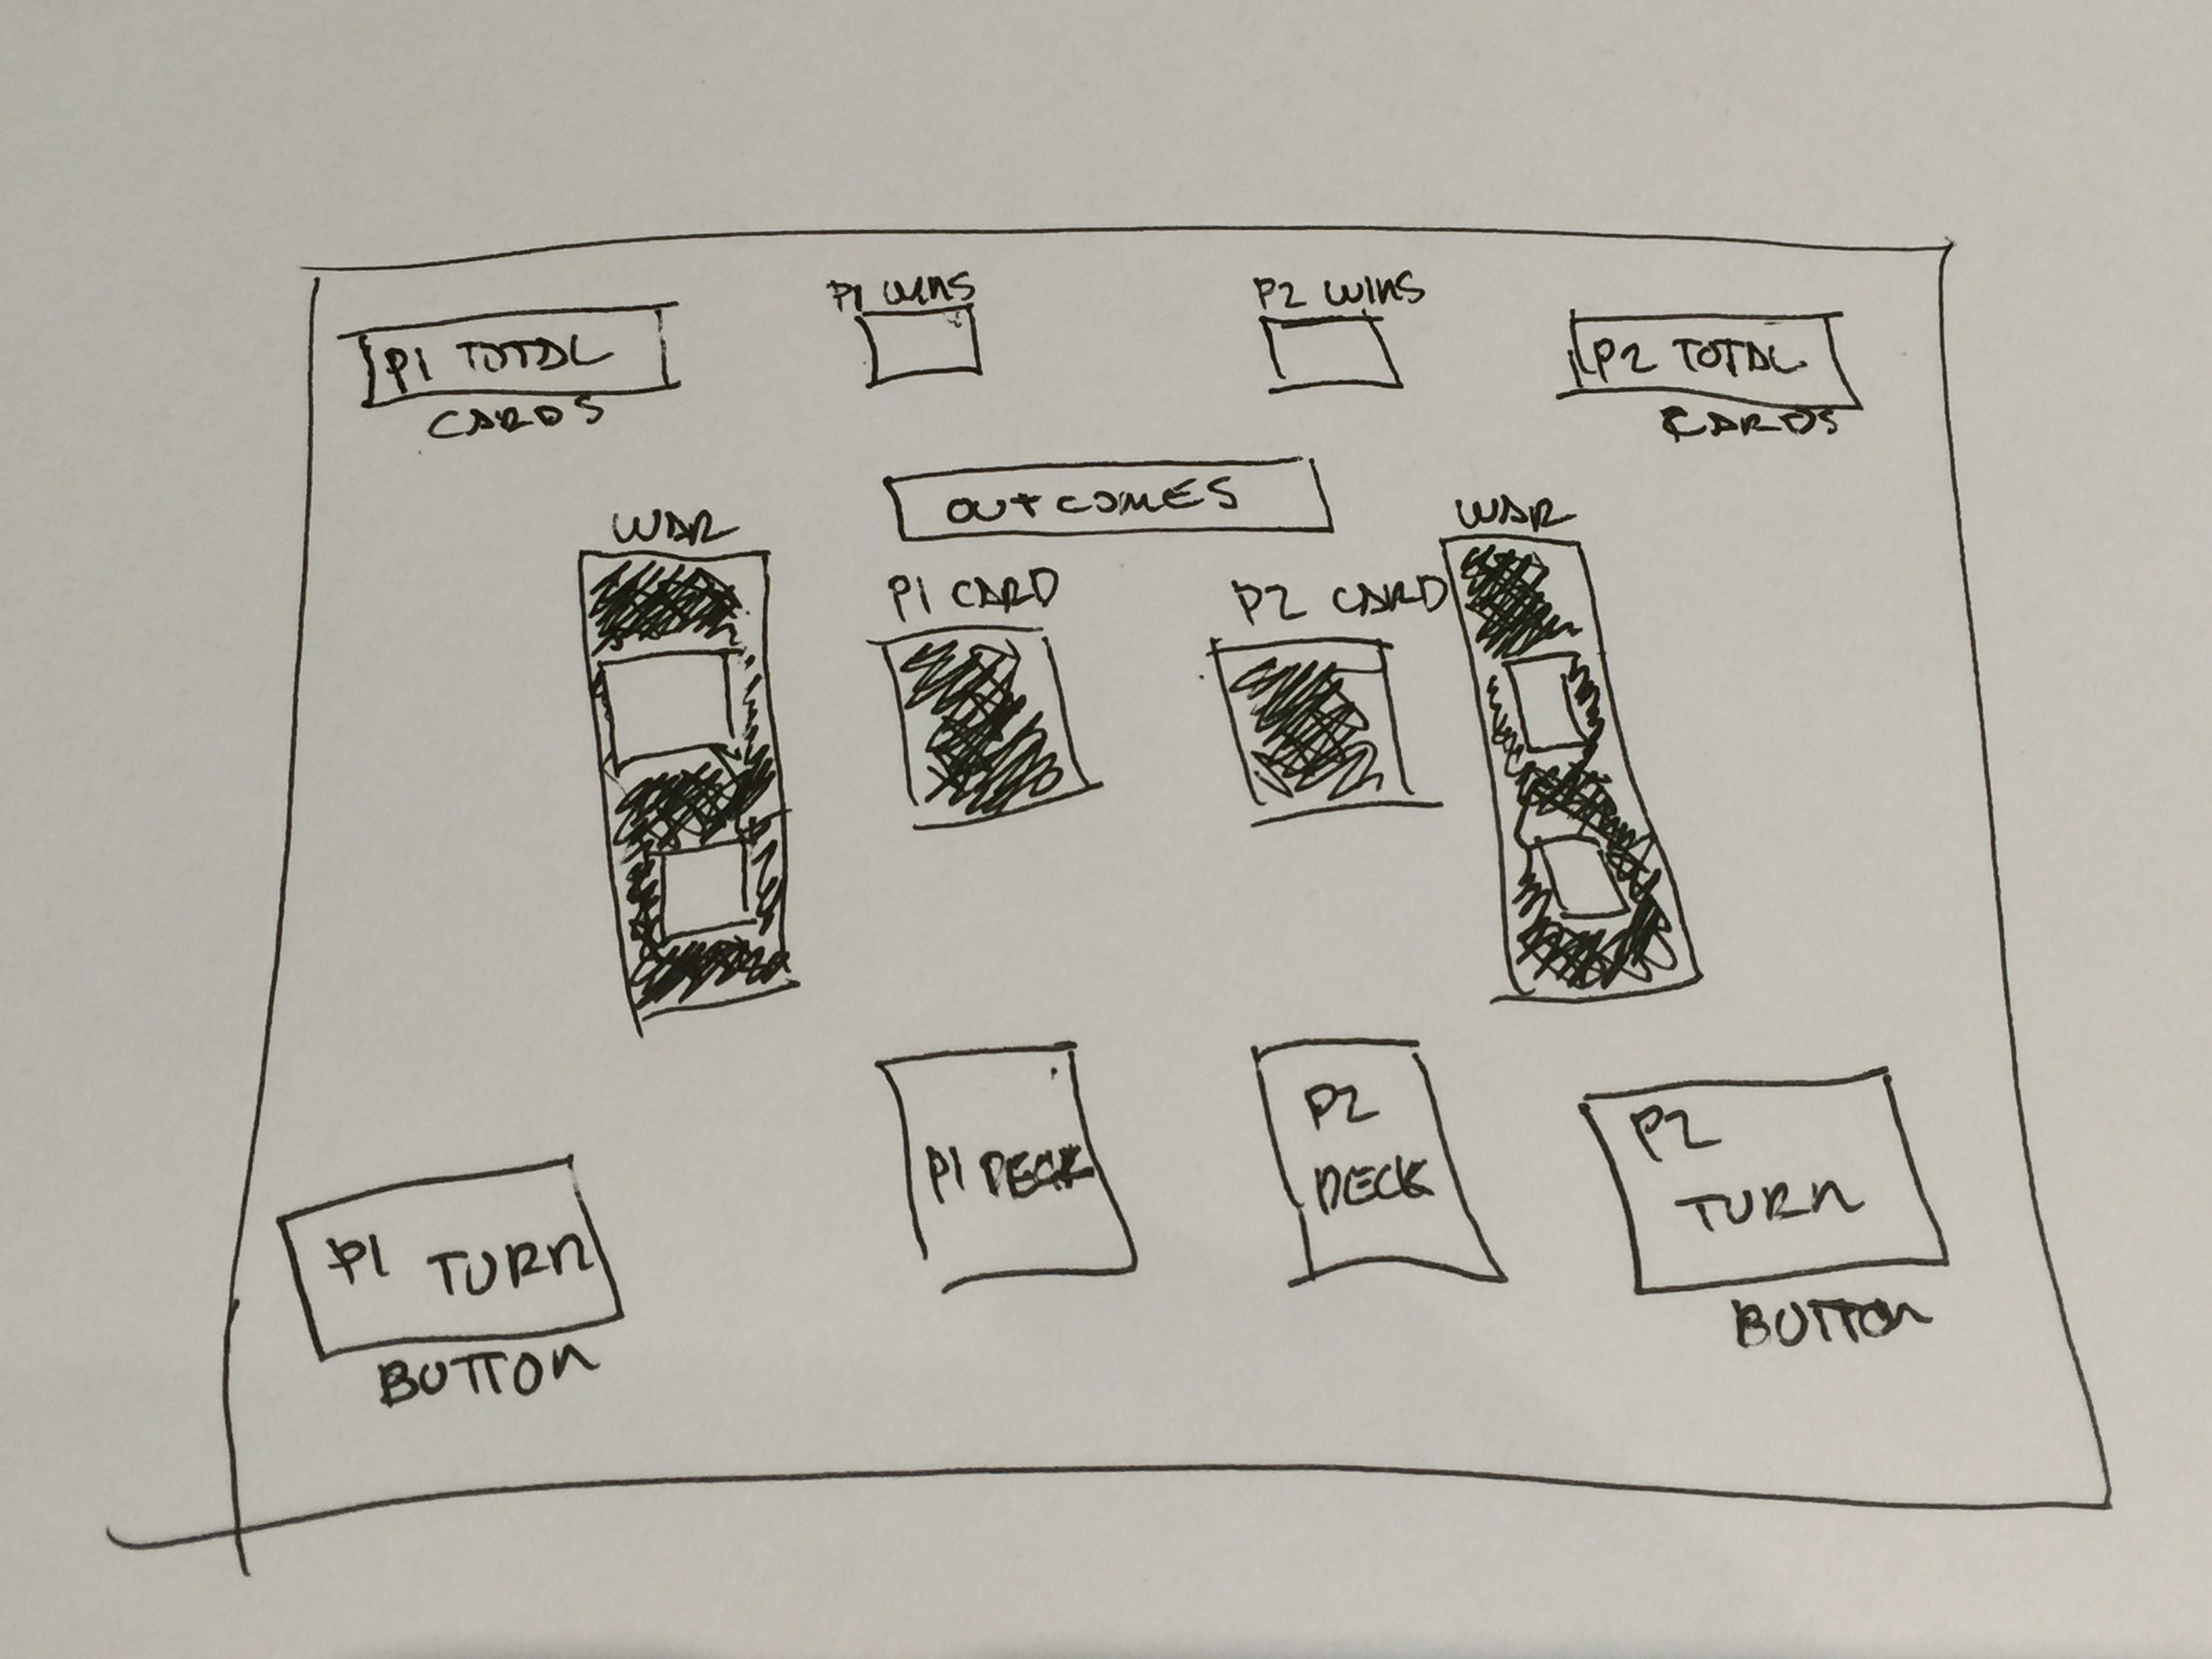 P1 WINS
P2 WINS
P1 TOTAL
CARDS
P2 TOTAL
CARDS
OUTCOMES
WAR
WAR
P1 CARD
P2 CARD
P1 DECK
P2
DECK
P1 TURN
BUTTON
P2
TURN
BUTTON